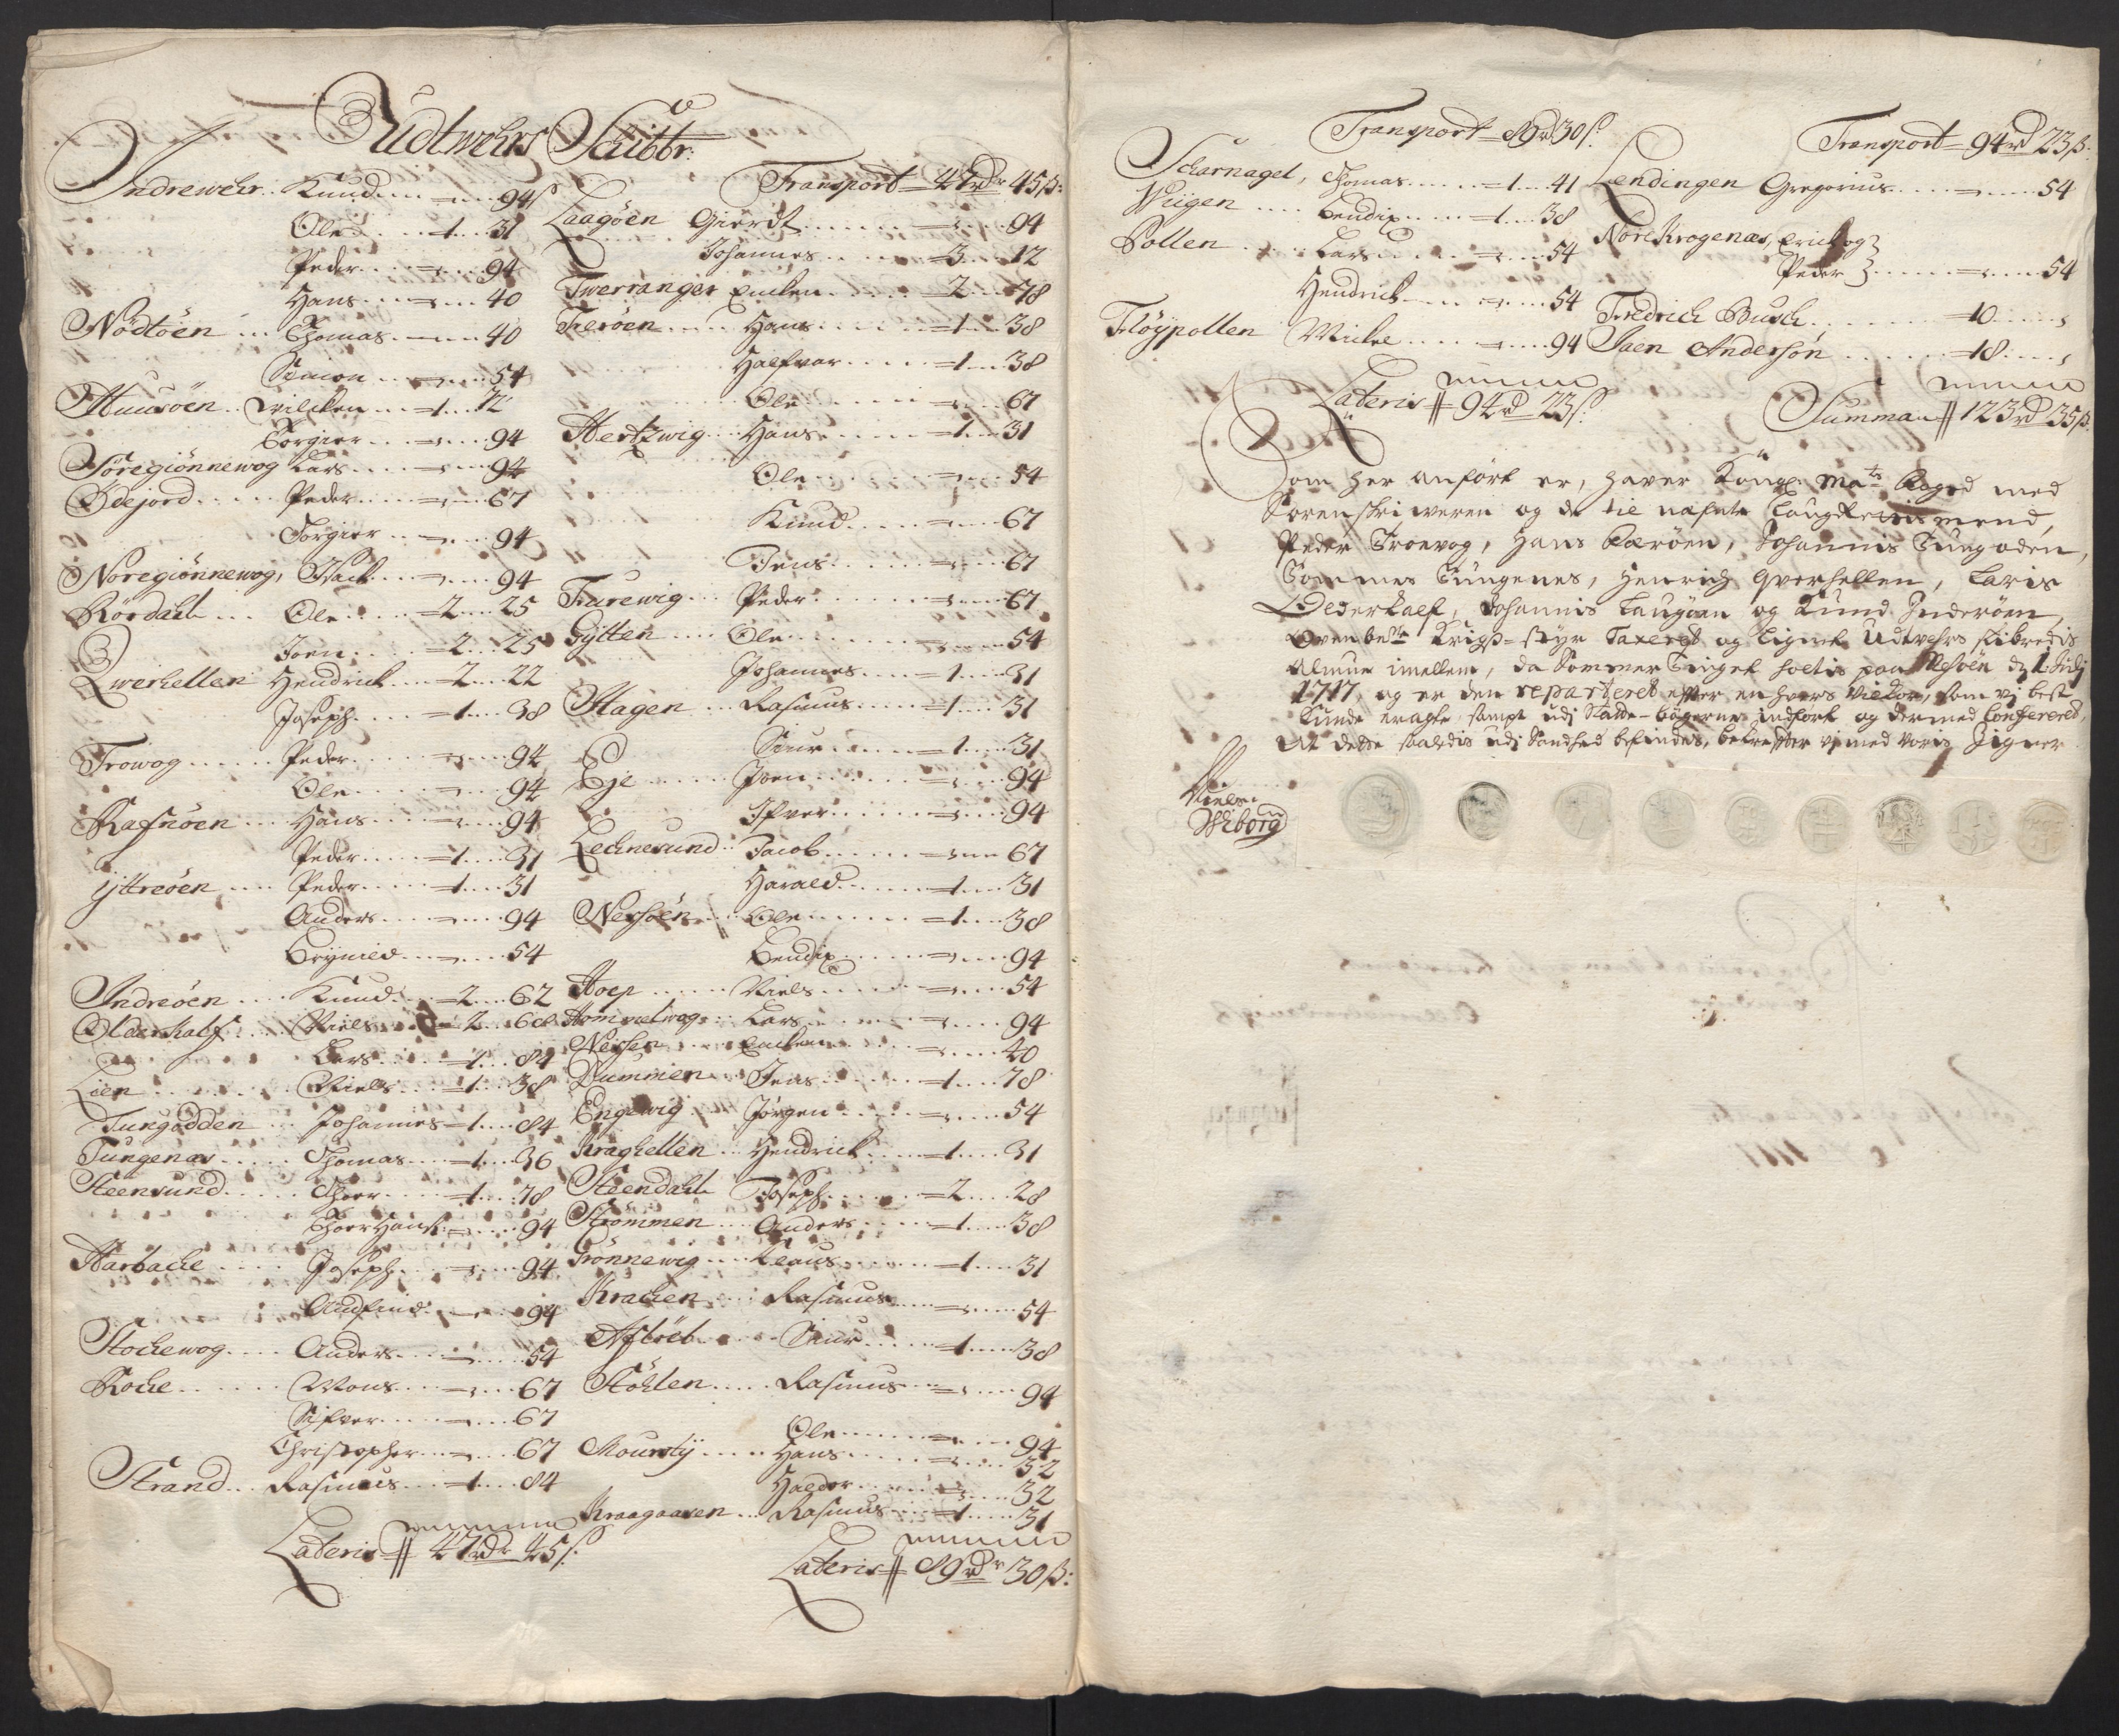 Üdtwehrs Schibbr:
Indrewehr.. Knud.... = .... 94 ß
Ole.... = 1.... 31
Peder.... = .... 94
Hans.... = .... 40
Nödtöen ... Thomas.... = .... 40
Simon.... = .... 54
Huusöen.. Wilcken... = 1.... 72
Torgier... = .... 94
Söregiönnewog Lars.... = .... 94
Ødejord..... Peder.... = .... 67
Torgier... = .... 94
Noregiönnewog, Isack.... = .... 94
Rördahl... Ole.... = 2.... 25
Joen.... = 2.... 25
Qwerhellen Hendrick... = 2.... 22
Joseph.... = 1.... 38
Trowog...... Peder.... = .... 94
Ole.... = .... 94
Rafnöen.... Hans.... = .... 94
Peder.... = 1.... 31
ÿttreöen.... Peder.... = 1.... 31
Anders.... = .... 94
Brynild.... = .... 54
Indreöen.... Knud.... = 2.... 62
Olderkalf.... Niels.... = 2.... 68
Lars.... = 1.... 84
Lien....... Niels.... = 1.... 38
Tungödden... Johannes = 1.... 84
Tungenæs..... Thomas.... = 1.... 36
Steensund..... Thoer.... = 1.... 78
Thoer Hans. = .... 94
Harbache..... Joseph.... = .... 94
Andfind.... = .... 94
Stochewog.... Anders.... = .... 54
Roche...... Mons.... = .... 67
Sifver.... = .... 67
Christopher... = .... 67
Strand... Rasmus... = 1.... 84
Lateris 47 rdr 45 ß:
Transport = 47 rdr 45 ß:
Laagöen Gierdt..... = .... 94
Johannes.... = 3.... 12
Twerranger Encken.... = 2.... 78
Færöen.... Hans.... = 1.... 38
Halfvor.... = 1.... 38
Ole.... = .... 67
Hertzwig.. Hans.... = 1.... 31
Ole.... = .... 54
Knud.... = .... 67
Jens.... = .... 67
Furewig... Peder.... = .... 67
Gÿtten.... Ole.... = .... 54
Johannes.... = 1.... 31
Hagen... Rasmus.... = 1.... 31
Siur.... = 1.... 31
Eje..... Joen.... = .... 94
Ifver.... = .... 94
Lechnesund.. Jacob.... = .... 67
Harald.... = 1.... 31
Nersöen.... Ole.... = 1.... 38
Bendix.... = .... 94
Hoep..... Niels.... = .... 54
Hommelwog.. Lars.... = .... 94
Nessen.... Encken.... = .... 40
Dummen.. Jens.... = 1.... 78
Engewig... Jörgen.... = .... 54
Kraghellen... Hendrick.... = 1.... 31
Steendahl Joseph.... = 2.... 28
Strömmen... Anders.... = 1.... 38
Grönnewig.... Claus.... = 1.... 31
Krachen.... Rasmus.... = .... 54
Siur.... = 1.... 38
Stöhlen..... Rasmus.... = .... 94
Ole.... = .... 94
Mourstÿ..... Hans.... = .... 32
Haldor.... = .... 32
Kraagaasen... Rasmus.... = 1.... 31
Lateris 89 rdr 30 ß:
Transport = 89 rd 30 ß.
Scharnagel, Thomas.... = 1.... 41
Wiigen.... Bendix.... = 1.... 38
Pollen.... Lars.... = .... 54
Hendrick.... = .... 54
Flöypollen Mickel.... = .... 94
Lateris 94 rd 23 ß.
Transport = 94 rd 23 ß:
Lendingen Gregorius.... = .... 54
Nore Krogenæs, Erick og
Peder } .... = .... 54
Fredrich Busch....... = 10.....
Jaen Andersön....... = 18.....
Summa 123 rd 35 ß.
Som her anfört er, haver Kongl. Mats Foged med
Sorenskriweren og de til næfnte Laugrettismend,
Peder Troevog, Hans Færöen, Johannis Tungoden,
Tommes Tungenes, Henrich Qverhellen, Laris
Olderkalf, Johannis Laugöen og Knud Inderöen
Ovenbente Krigs-styr Taxeret og lignet Udtvehrs skibredis
Almue imellem, da Sommer Tinget holtis paa Nesöen d 1 July
1717, og er den reparteret efter en hvers vilkor, som vj best
kunde eragte, sampt udj Skatte-bögerne indfört og dermed Confereret,
At dette saaledis udj Sandhed befindes, bekrefter vj med voris Zigner
Niels
Wiborg